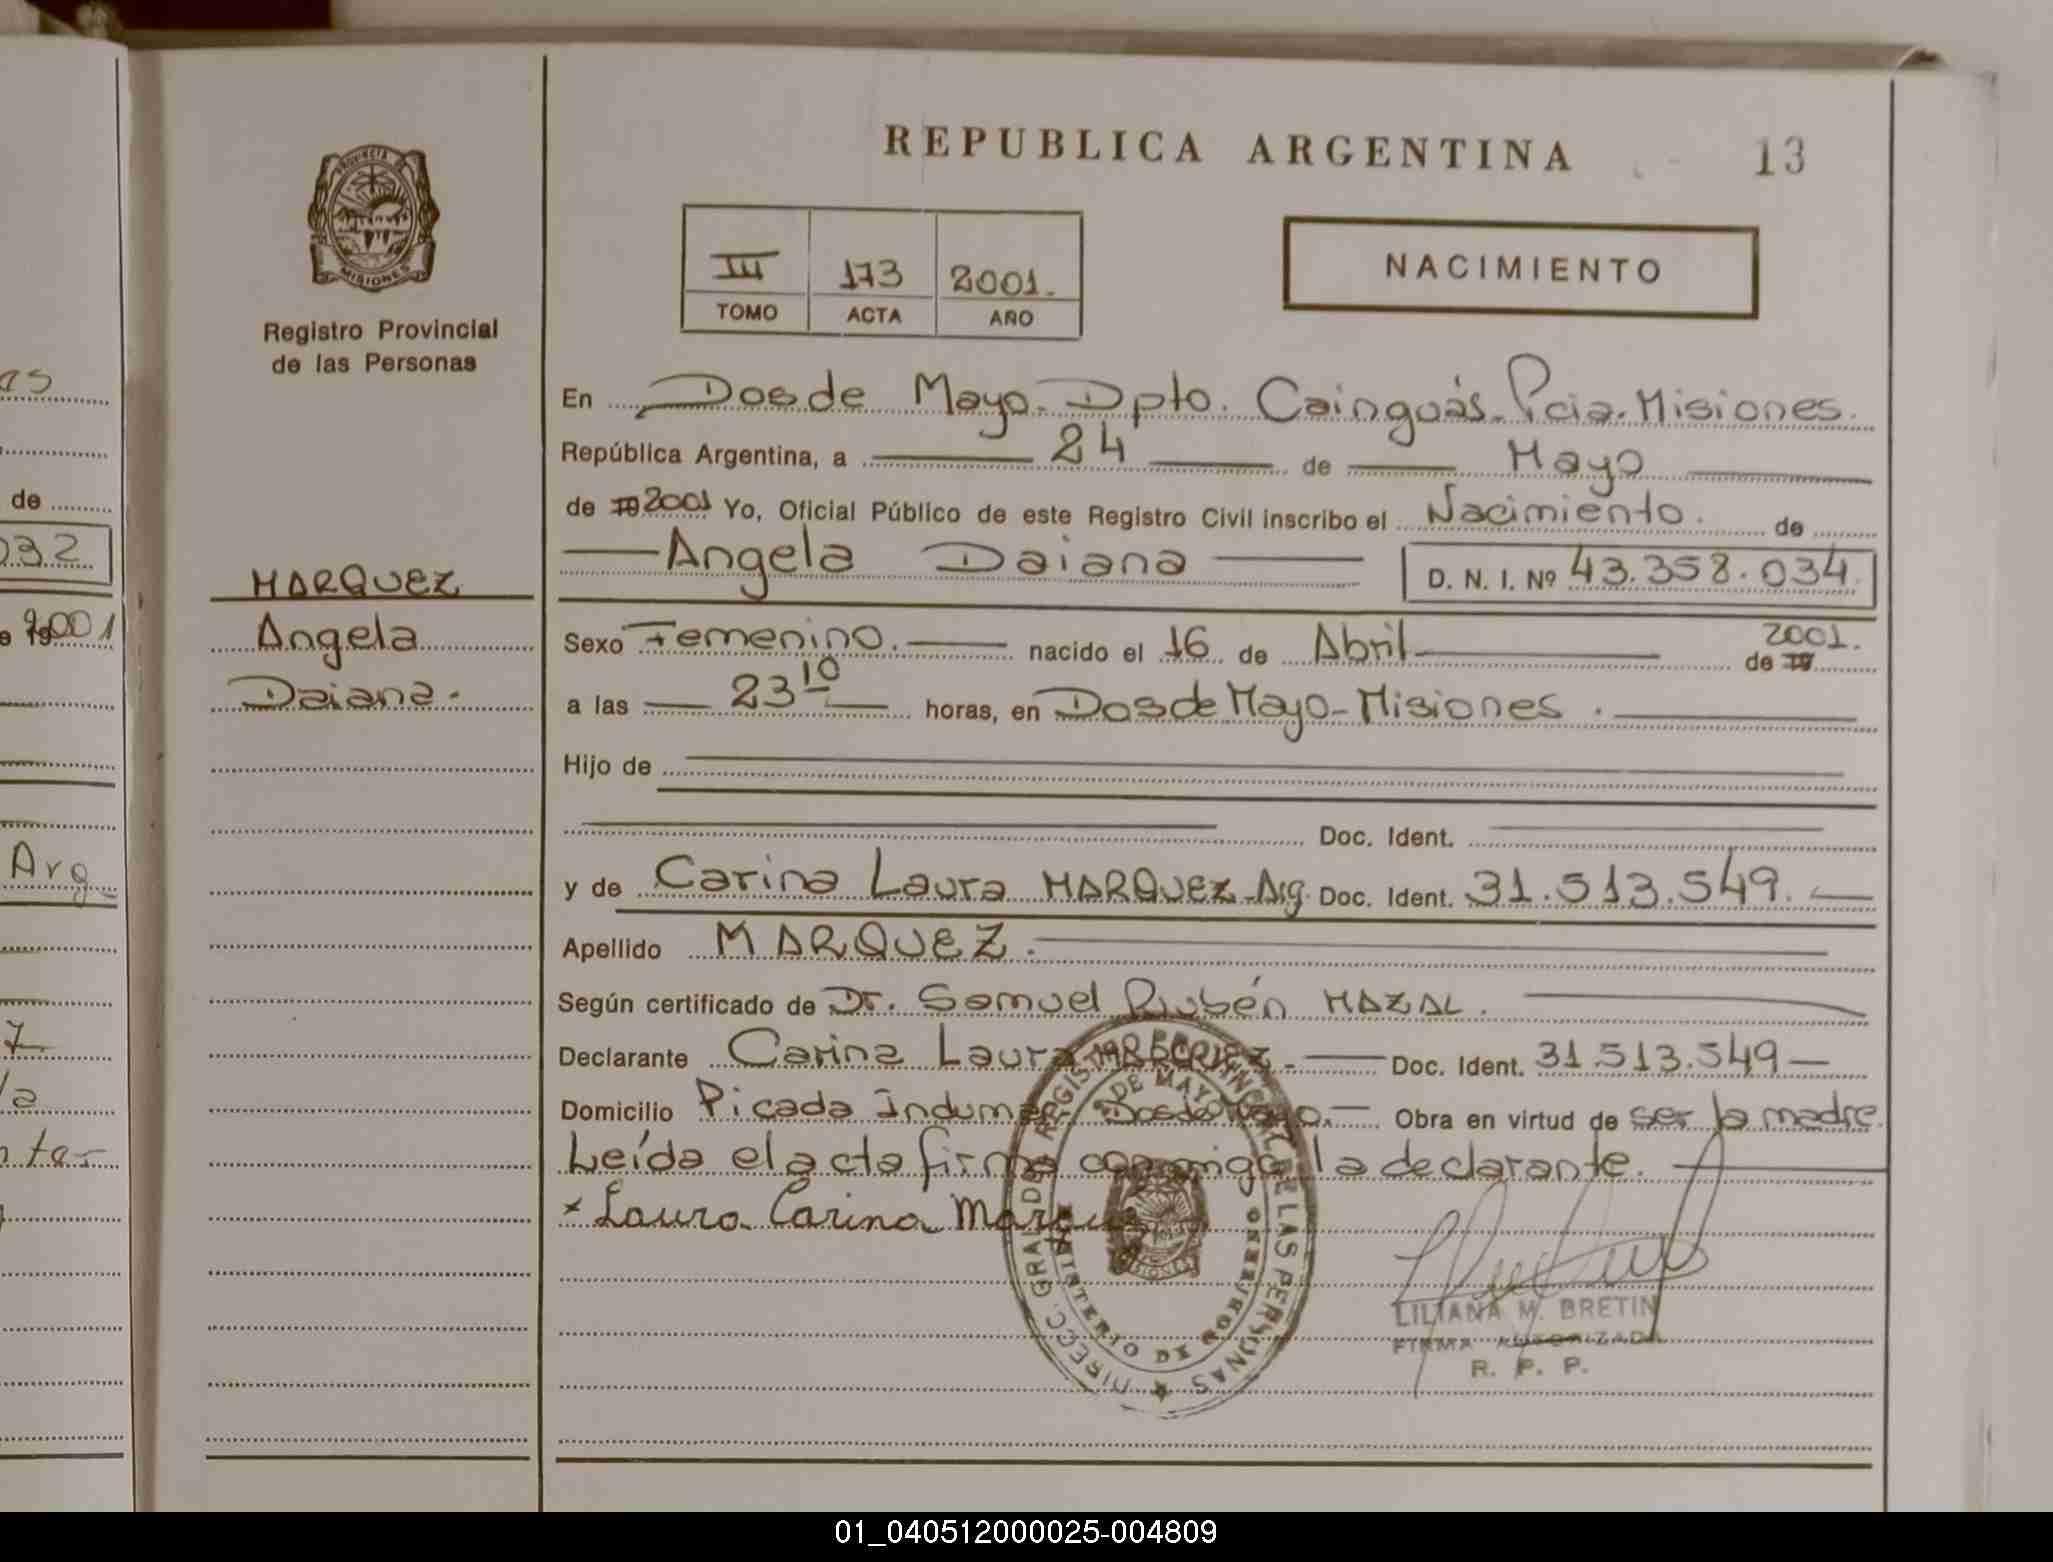 as
de
032
e 192001
Arg_
7
PROVINCIA DE
MISIONES
Registro Provincial
de las Personas
MARQUEZ
Angela
Daiana.
REPUBLICA ARGENTINA
13
III 173 2001.
TOMO ACTA AÑO
NACIMIENTO
En Dos de Mayo. Dpto. Cainguás. Pcia. Misiones.
República Argentina, a 24 de Mayo
de 19 2001 Yo, Oficial Público de este Registro Civil inscribo el Nacimiento. de
Angela Daiana D. N. I. Nº 43.358.034.
Sexo Femenino. nacido el 16 de Abril de 19 2001.
a las 23 10 horas, en Dos de Mayo - Misiones.
Hijo de
Doc. Ident.
y de Carina Laura MARQUEZ - Arg. Doc. Ident. 31.513.549.
Apellido MARQUEZ.
Según certificado de Dr. Samuel Rubén MAZAL.
Declarante Carina Laura MARQUEZ - Doc. Ident. 31.513.549
Domicilio Picada Indumar - Dos de Mayo. Obra en virtud de ser la madre.
Leída el acta firma conmigo la declarante.
x Laura Carina Marquez
DIRECC. GRAL. DEL REGISTRO PROVINCIAL DE LAS PERSONAS
2 DE MAYO
MINISTERIO DE GOBIERNO
MISIONES
LILIANA M. BRETIN
FIRMA AUTORIZADA
R. P. P.
01_040512000025-004809